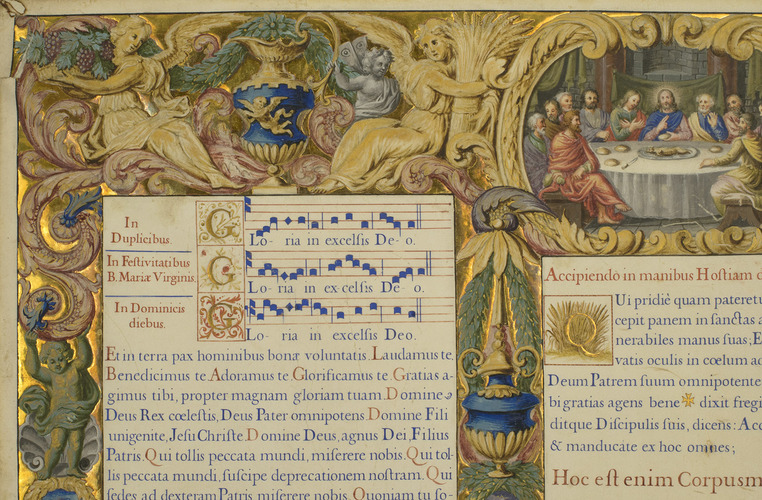 In
Duplicibus.
G
Lo- ria in excelsis De- o.
In Festivitatibus
B. Mariæ Virginis.
G
Lo- ria in ex celsis De o.
In Dominicis
diebus.
G
Lo- ria in excelsis Deo.
Et in terra pax hominibus bonæ voluntatis Laudamus te,
Benedicimus te Adoramus te Glorificamus te Gratias a-
gimus tibi, propter magnam gloriam tuam Domine
Deus Rex cœlestis, Deus Pater omnipotens Domine Fili
unigenite, Jesu Christe Domine Deus, agnus Dei, Filius
Patris. Qui tollis peccata mundi, miserere nobis. Qui tol-
lis peccata mundi, suscipe deprecationem nostram. Qui
sedes ad dexteram Patris miserere nobis. Quoniam tu so-
Accipiendo in manibus Hostiam
QUi pridiè quam pateretu
cepit panem in sanctas a
nerabiles manus suas; E
vatis oculis in cœlum ad
Deum Patrem suum omnipotente
bi gratias agens bene dixit fregi
ditque Discipulis suis, dicens: Acc
& manducate ex hoc omnes;
Hoc est enim Corpusm